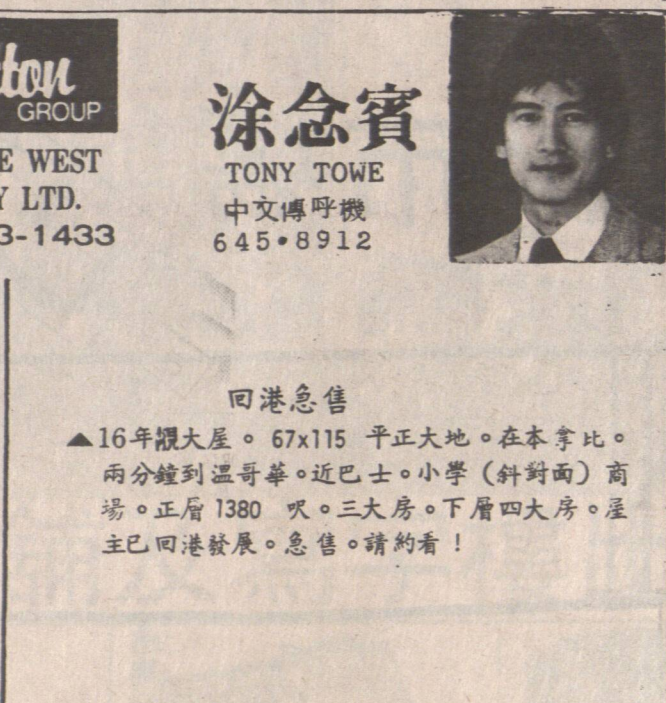 ton
GROUP
E WEST
Y LTD.
3-1433
涂念賓
TONY TOWE
中文傳呼機
645•8912
回港急售
▲16年靚大屋。67x115 平正大地。在本拿比。
兩分鐘到溫哥華。近巴士。小學(斜對面)商
場。正層1380 呎。三大房。下層四大房。屋
主已回港發展。急售。請約看!